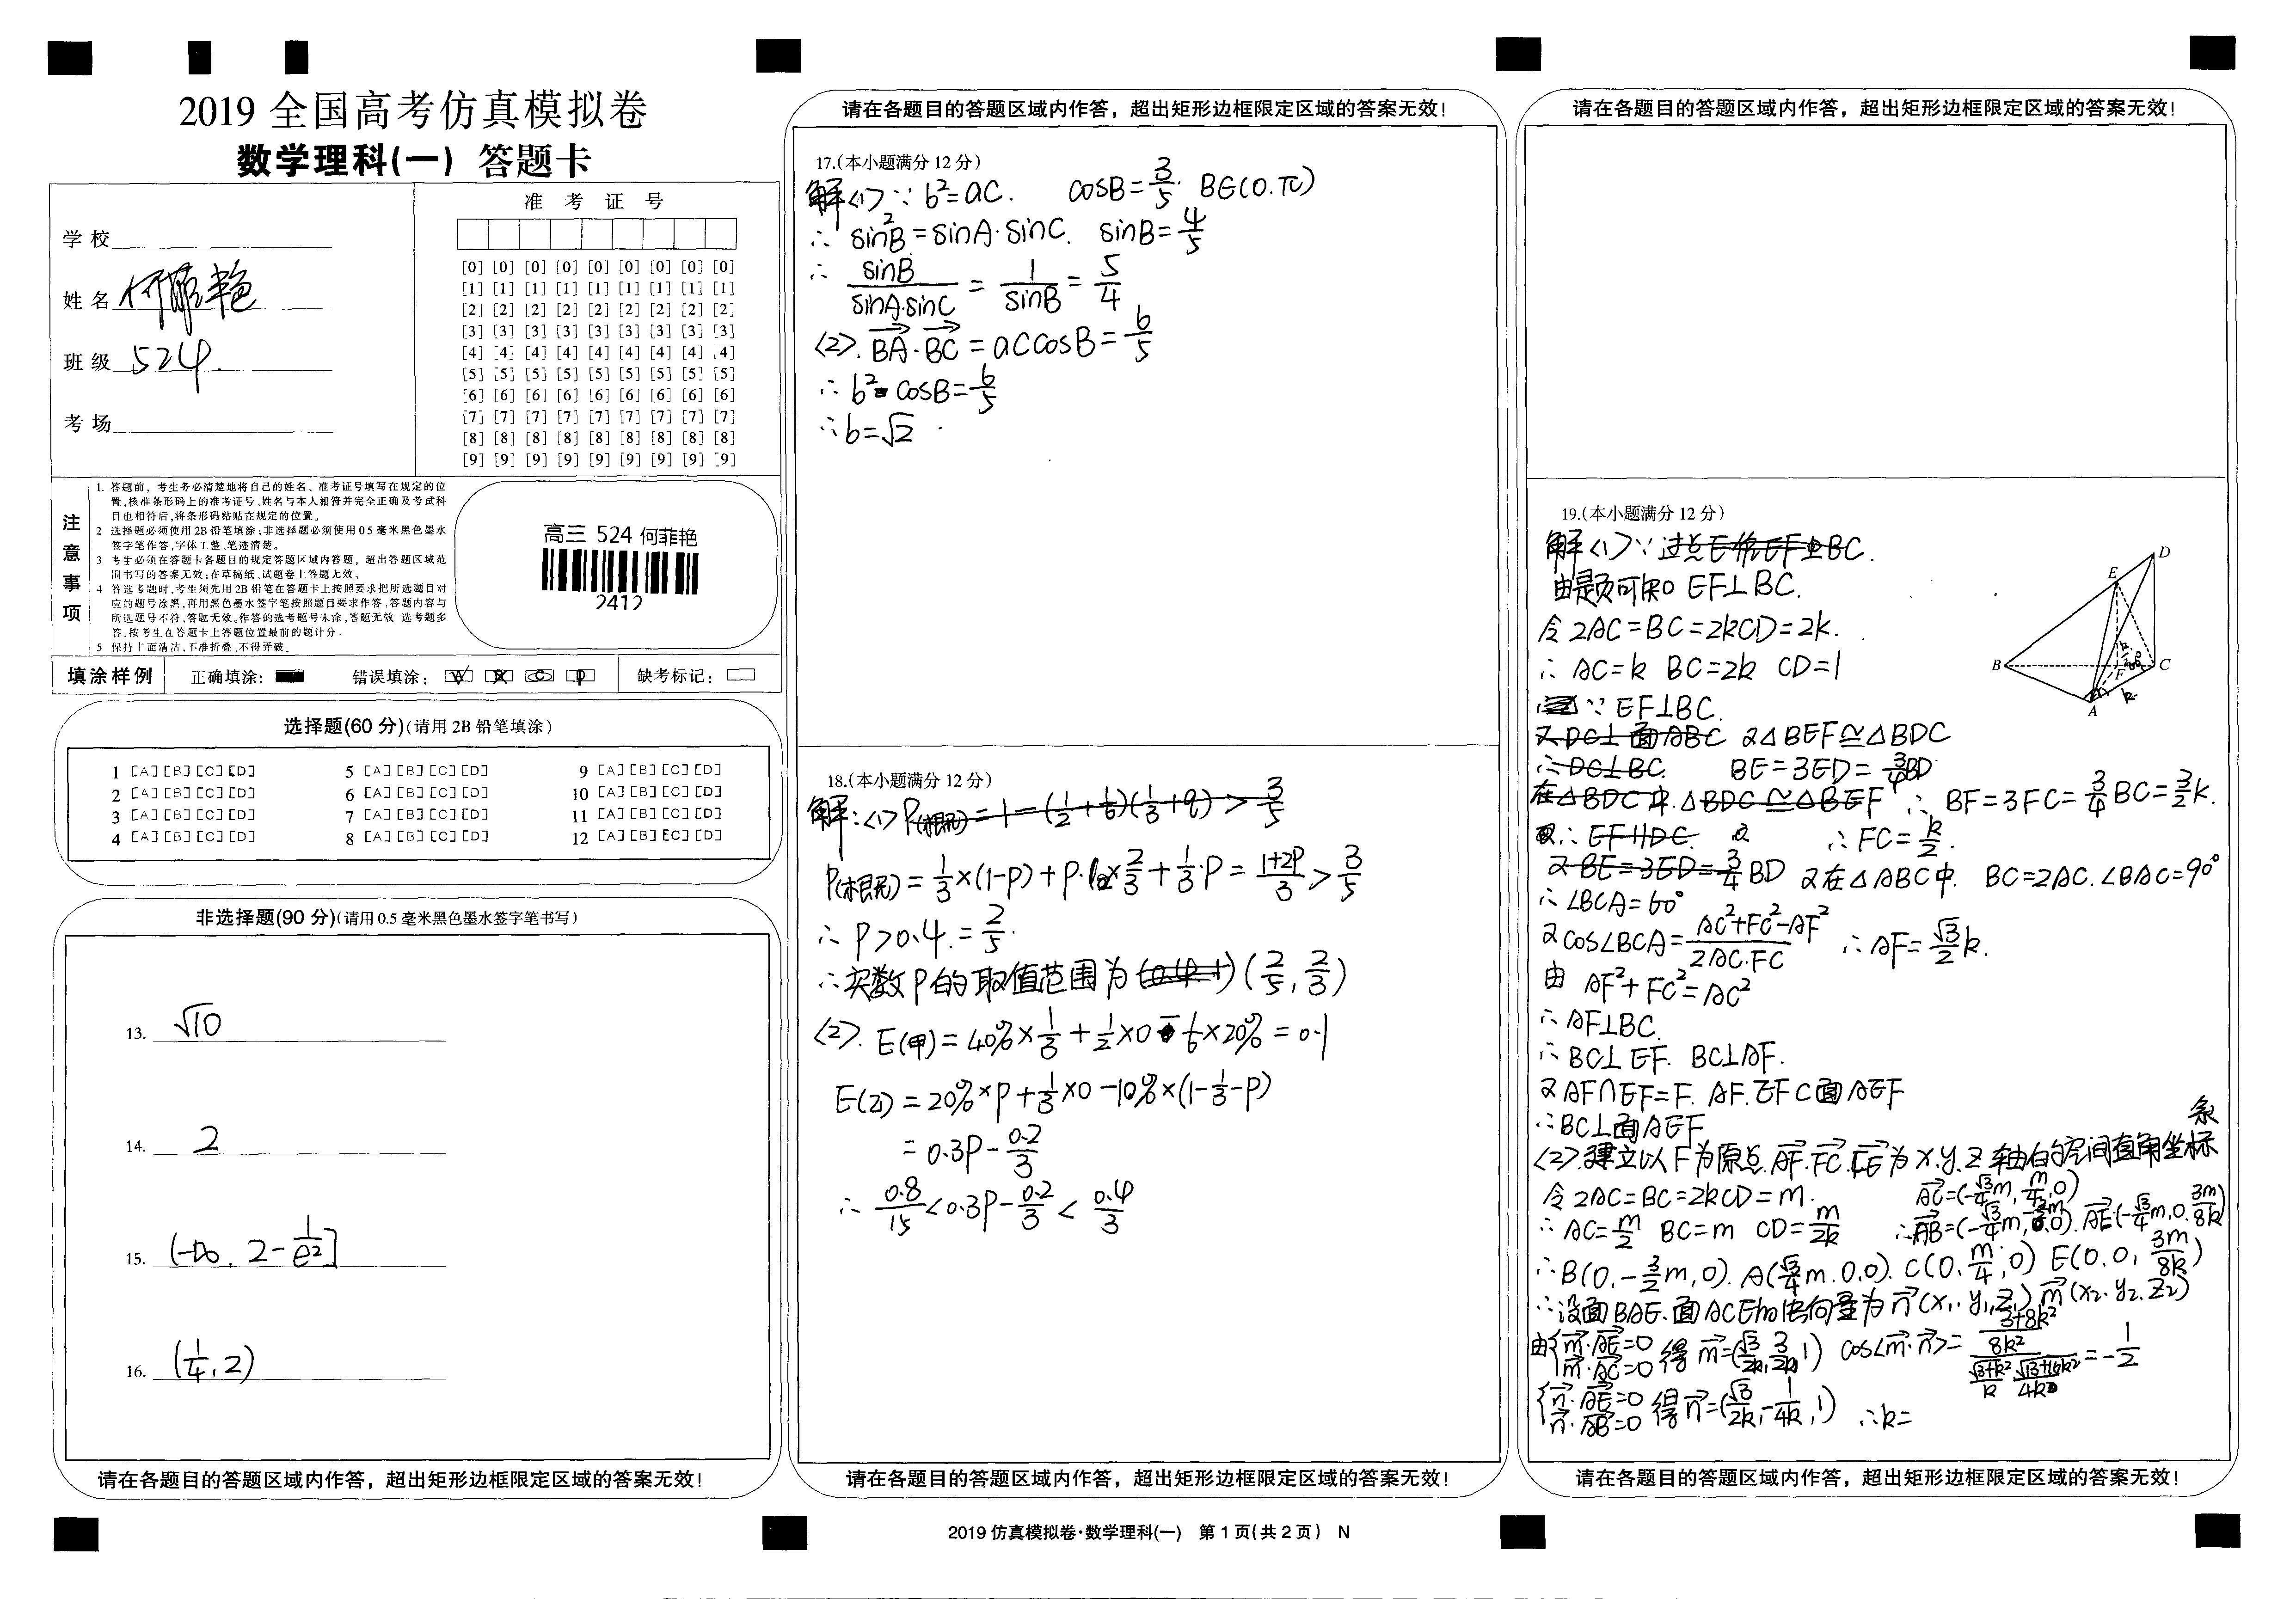 2019 全国高考仿真模拟卷
数学理科(一) 答题卡
学校
姓名 何菲艳
班级 524.
考场
准 考 证 号
[0] [0] [0] [0] [0] [0] [0] [0] [0]
[1] [1] [1] [1] [1] [1] [1] [1] [1]
[2] [2] [2] [2] [2] [2] [2] [2] [2]
[3] [3] [3] [3] [3] [3] [3] [3] [3]
[4] [4] [4] [4] [4] [4] [4] [4] [4]
[5] [5] [5] [5] [5] [5] [5] [5] [5]
[6] [6] [6] [6] [6] [6] [6] [6] [6]
[7] [7] [7] [7] [7] [7] [7] [7] [7]
[8] [8] [8] [8] [8] [8] [8] [8] [8]
[9] [9] [9] [9] [9] [9] [9] [9] [9]
注意事项
1. 答题前，考生务必清楚地将自己的姓名、准考证号填写在规定的位
置,核准条形码上的准考证号、姓名与本人相符并完全正确及考试科
目也相符后,将条形码粘贴在规定的位置。
2 选择题必须使用2B铅笔填涂;非选择题必须使用05毫米黑色墨水
签字笔作答,字体工整、笔迹清楚。
3 考生必须在答题卡各题目的规定答题区域内答题，超出答题区域范
围书写的答案无效;在草稿纸、试题卷上答题无效。
4 答选考题时,考生须先用2B铅笔在答题卡上按照要求把所选题目对
应的题号涂黑,再用黑色墨水签字笔按照题目要求作答,答题内容与
所选题号不符,答题无效。作答的选考题号未涂,答题无效 选考题多
答,按考生在答题卡上答题位置最前的题计分.
5 保持卡面清洁,不准折叠、不得弄破。
高三 524 何菲艳
2412
填涂样例 正确填涂: 错误填涂: 缺考标记:
选择题(60分)(请用2B铅笔填涂)
1 [A][B][C][D] 5 [A][B][C][D] 9 [A][B][C][D]
2 [A][B][C][D] 6 [A][B][C][D] 10 [A][B][C][D]
3 [A][B][C][D] 7 [A][B][C][D] 11 [A][B][C][D]
4 [A][B][C][D] 8 [A][B][C][D] 12 [A][B][C][D]
非选择题(90分)(请用0.5毫米黑色墨水签字笔书写)
13. √10
14. 2
15. (-∞, 2-1/e²]
16. (1/4, 2)
请在各题目的答题区域内作答，超出矩形边框限定区域的答案无效!
请在各题目的答题区域内作答，超出矩形边框限定区域的答案无效!
17.(本小题满分12分)
解<1>∵ b²=ac. cosB=3/5. B∈(0.π)
∴ sin²B=sinA·sinC. sinB=4/5
∴ sinB/(sinA·sinC) = 1/sinB = 5/4
<2>. BA·BC = accosB=6/5
∴ b² cosB=6/5
∴b=√2.
18.(本小题满分12分)
解:<1> P(根无)=1-(1/2+1/6)(1/3+q)>3/5
P(根无)=1/3×(1-P)+P·×2/3+1/3·P=(1+2P)/3>3/5
∴ P>0.4.=2/5.
∴实数P的取值范围为(2/5, 2/3)
<2>. E(甲)=40%×1/3+1/2×0-1/6×20%=0.1
E(乙)=20%×P+1/3×0-10%×(1-1/3-P)
=0.3P-0.2/3
∴ 0.8/15<0.3P-0.2/3<0.4/3
请在各题目的答题区域内作答，超出矩形边框限定区域的答案无效!
2019仿真模拟卷·数学理科(一) 第1页(共2页) N
请在各题目的答题区域内作答，超出矩形边框限定区域的答案无效!
19.(本小题满分12分)
解<1>∵过点E作EF⊥BC.
由题可知 EF⊥BC.
令 2AC=BC=2kCD=2k.
∴ AC=k BC=2k CD=1
∵ EF⊥BC.
又DC⊥面ABC 又△BEF≅△BDC
∴DC⊥BC. BE=3ED=3/4BD
在△BDC中.△BDC≅△BEF ∴ BF=3FC=3/4BC=3/2k.
∴EF∥DC. 又 ∴FC=k/2.
又BE=3ED=3/4BD 又在△ABC中. BC=2AC.∠BAC=90°
∴∠BCA=60°
又cos∠BCA=(AC²+FC²-AF²)/(2AC·FC) ∴AF=√3/2k.
由 AF²+FC²=AC²
∴AF⊥BC.
∴BC⊥EF. BC⊥AF.
又AF∩EF=F. AF.EF⊂面AEF
∴BC⊥面AEF
<2>.建立以F为原点.AF.FC.FE为X.y.Z轴的空间直角坐标系
令2AC=BC=2kCD=m. AC=(-√3/4m, m/4, 0)
∴AC=m/2 BC=m CD=m/2k ∴AB=(-√3/4m,-3/4m,0). AE(-√3/4m,0.3m/8k)
∴B(0,-3/2m,0). A(√3/4m.0,0). C(0,m/4,0) E(0.0, 3m/8k)
∴设面BAE.面ACE的法向量为n(x₁.y₁,z₁) m(x₂.y₂.z₂)
由{m·AE=0 m·AC=0 得m=(√3/2k,3/2k,1) cos<m·n>=((3+8k²)/8k²)/(√(3+k²)/k·√(13+16k²)/4k)=-1/2
{n·AE=0 n·AB=0 得n=(√3/2k,-1/4k,1) ∴k=
D
E
B
C
F
A
k/2
60°
k
请在各题目的答题区域内作答，超出矩形边框限定区域的答案无效!